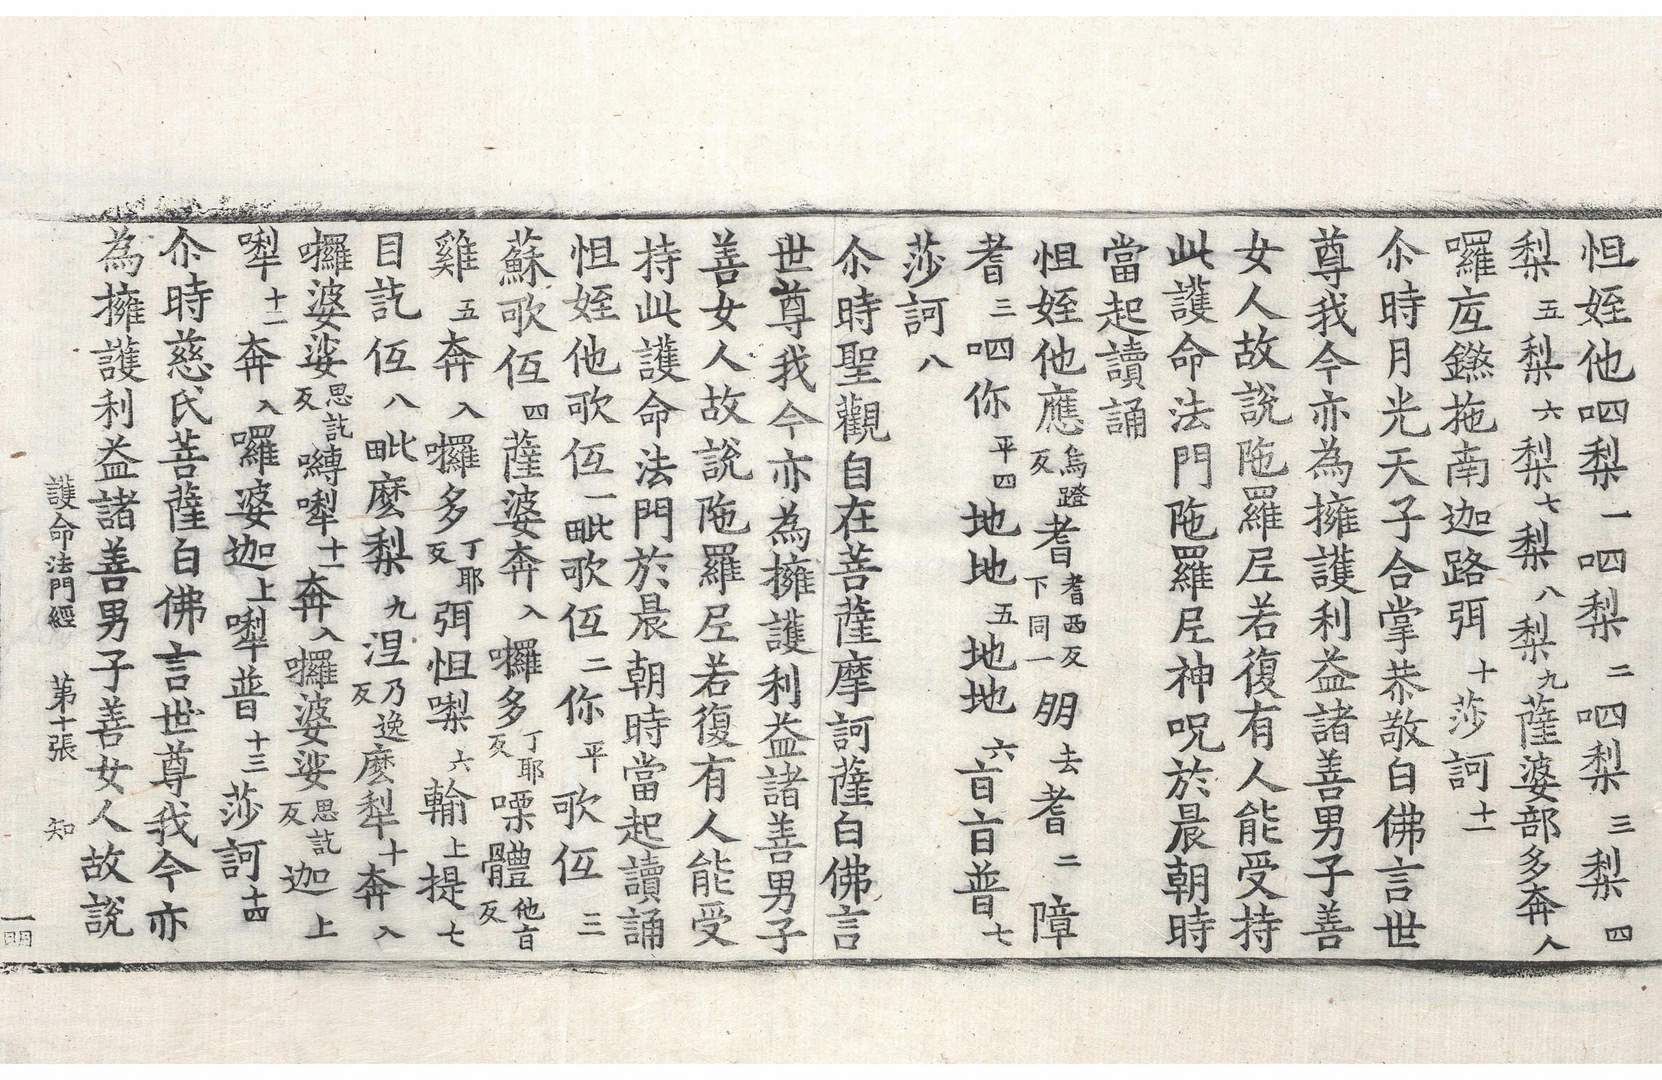 怛姪他呬梨一呬梨二呬梨三梨四
梨五梨六梨七梨八梨九薩婆部多奔入
囉㡿鑅拖南迦路弭十莎訶十一
尒時月光天子合掌恭敬白佛言世
尊我今亦為擁護利益諸善男子善
女人故說陁羅尼若復有人能受持
此護命法門陁羅尼神呪於晨朝時
當起讀誦
怛姪他應烏蹬反耆耆西反下同一朋去耆二障
耆三呬你平四地地五地地六亩亩普七
莎訶八
尒時聖觀自在菩薩摩訶薩白佛言
世尊我今亦為擁護利益諸善男子
善女人故說陁羅尼若復有人能受
持此護命法門於晨朝時當起讀誦
怛姪他歌仾一毗歌仾二你平歌仾三
蘇歌仾四薩婆奔入囉多丁耶反㗚體他亩反
雞五奔入囉多丁耶反弭怛㗚六輸上提七
目訖仾八毗麼梨九涅乃逸反麼犁十奔入
囉婆娑思訖反嚩嚟十一奔入囉婆娑思訖反迦上
嚟十二奔入囉婆迦上嚟普十三莎訶十四
尒時慈氏菩薩白佛言世尊我今亦
為擁護利益諸善男子善女人故說
護命法門經 第十張 知